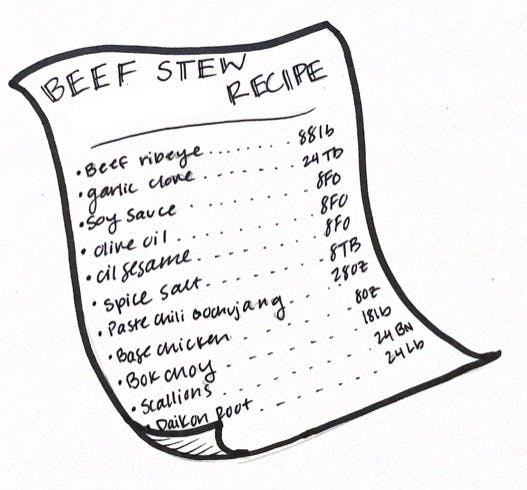 BEEF STEW
RECIPE
• Beef ribeye........ 88lb
• garlic clove....... 24TB
• Soy sauce....... 8FO
• olive oil....... 8FO
• oil sesame....... 8FO
• spice salt....... 8TB
• Paste chili Gochujang... 28oz
• Base chicken....... 8oz
• Bok choy....... 18lb
• Scallions....... 24 BN
• Daikon Root....... 24 Lb